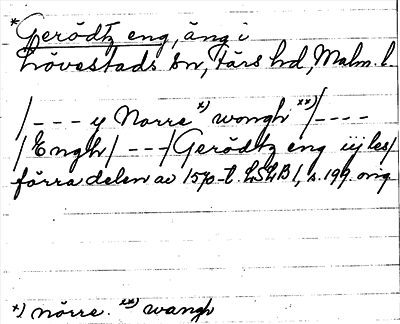 *Gerödtz eng, äng i
Lövestads sn, Färs hd, Malm. l.
/--- y Norre *) wongh **)/----
/Engh/ ---/Gerödtz eng iij les/
förra delen av 1570-t. LSLB I, s. 199. orig
*) nörre. **) wangh